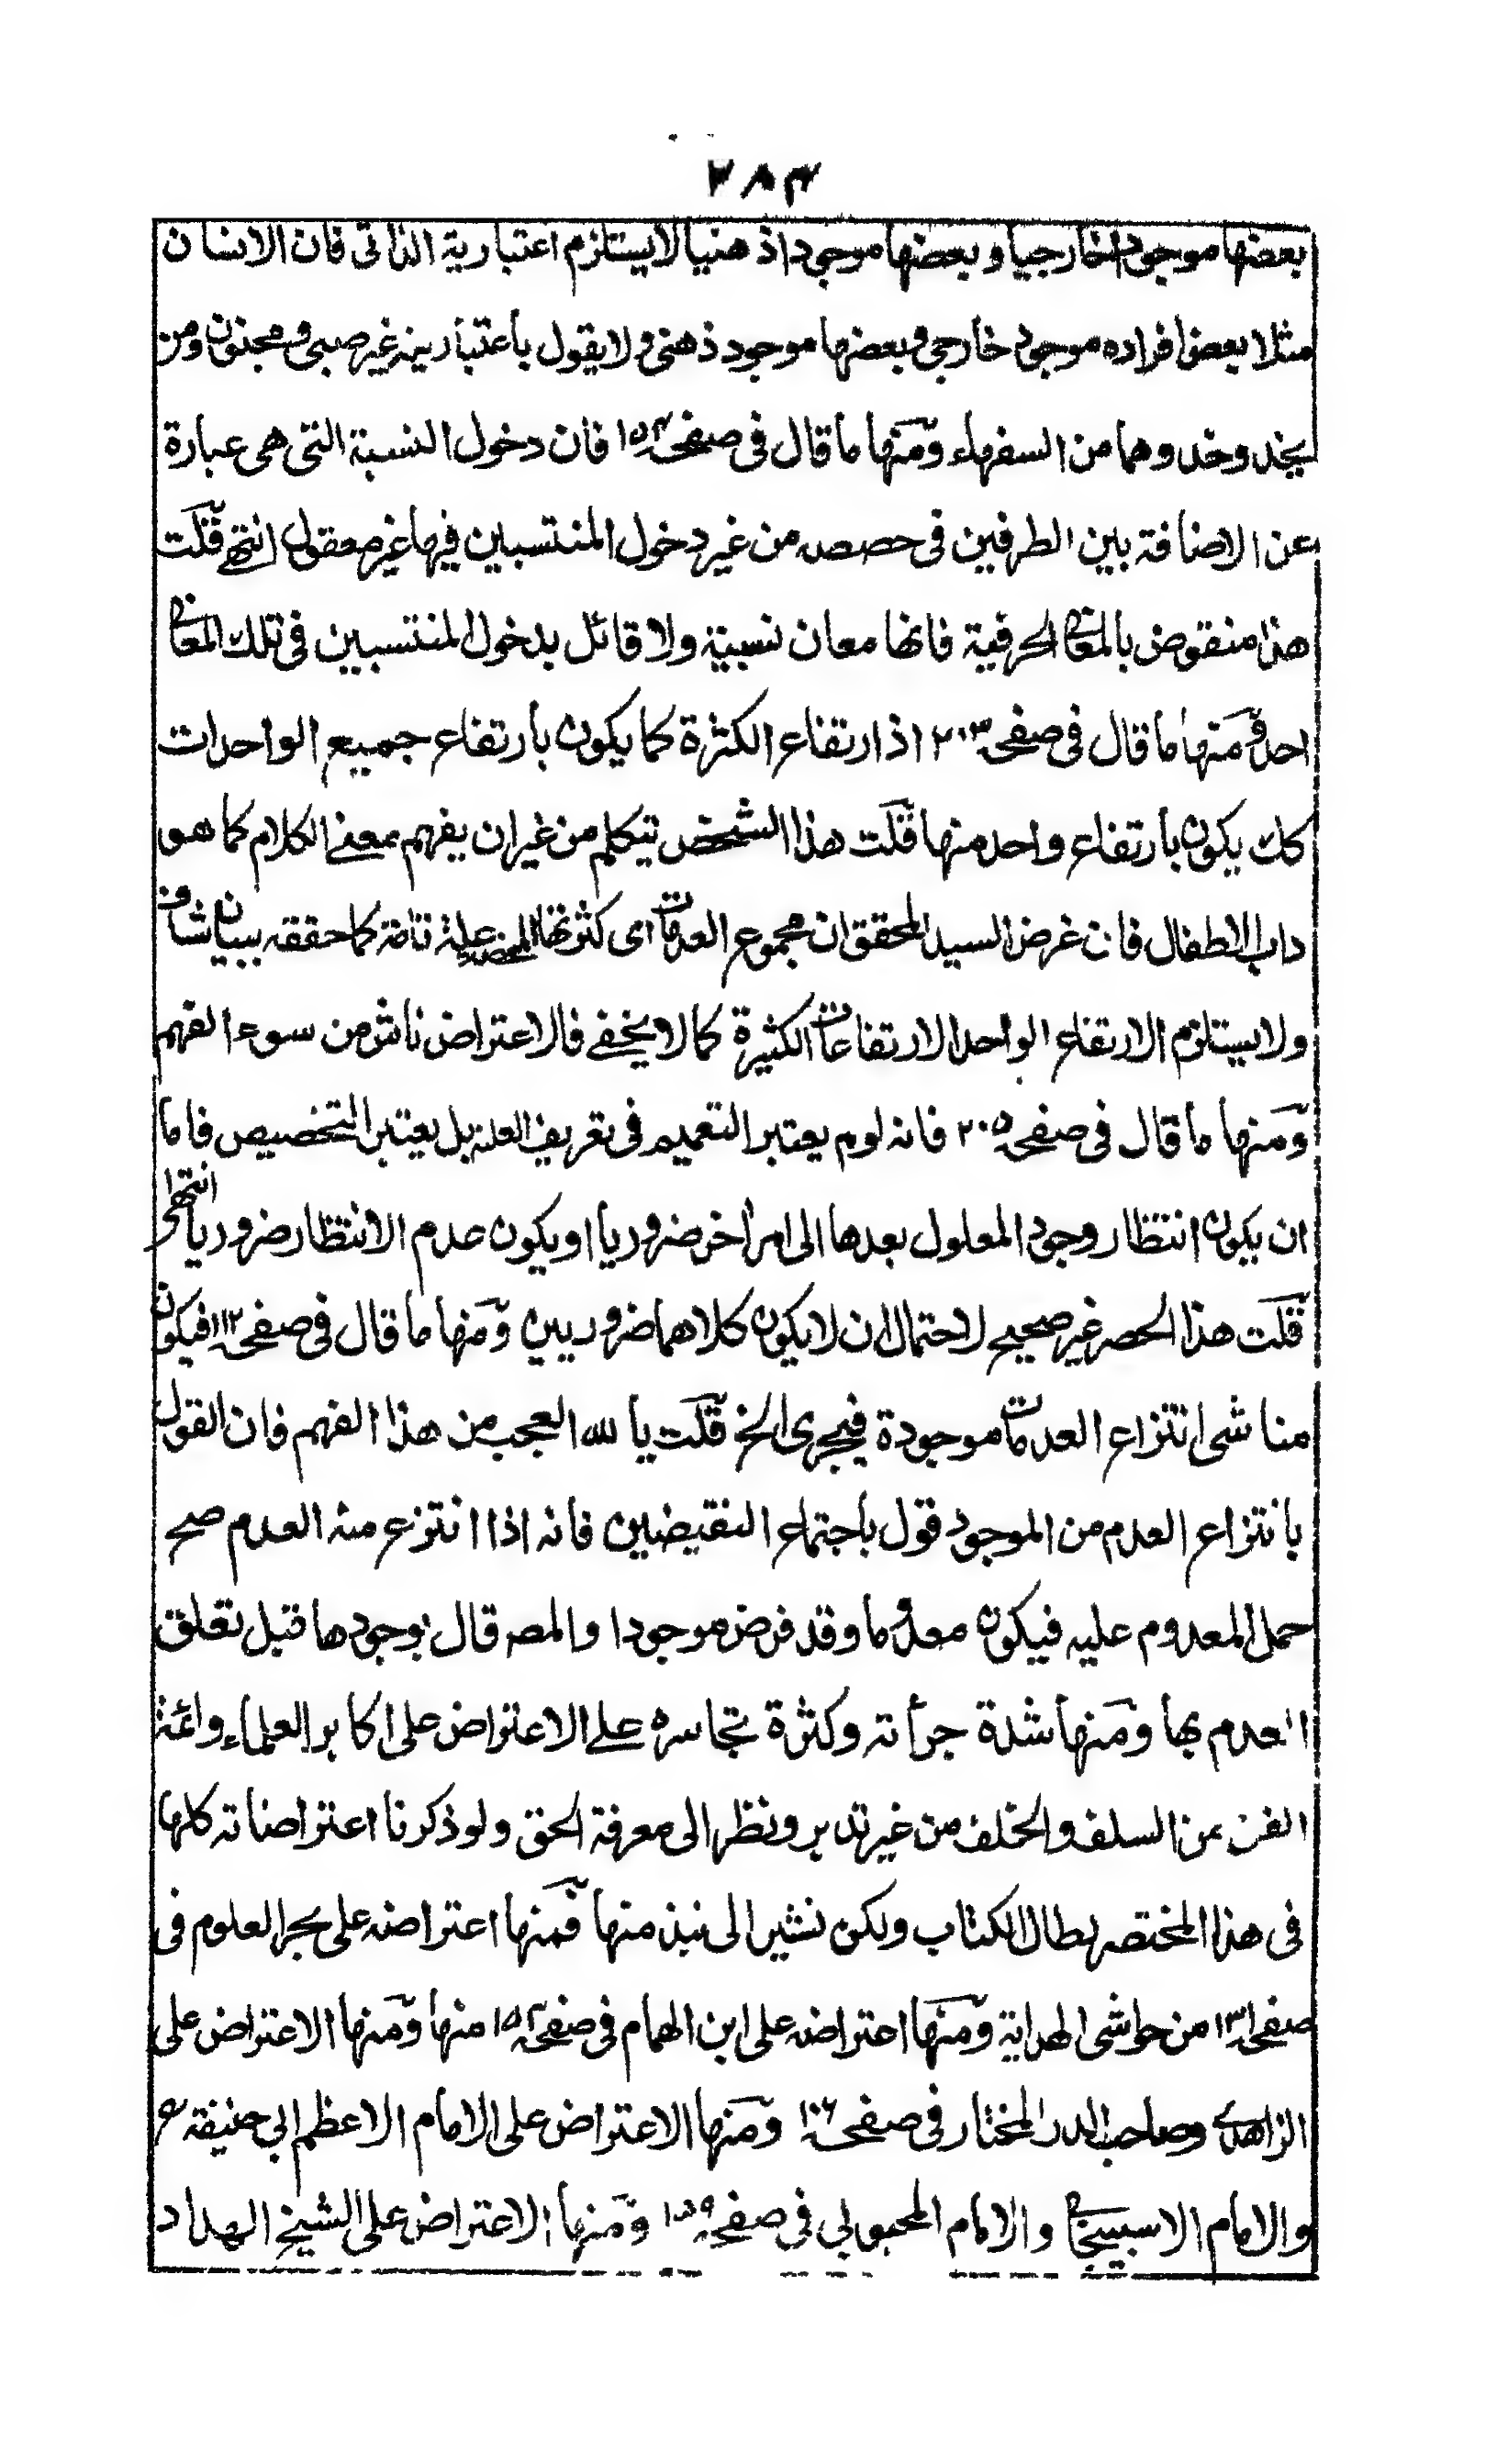 ۲۸۴
بعضها موجودا خارجيا وبعضها موجودا ذهنيا لا يستلزم اعتبارية الذاتى فان الانسان
مثلا بعض افراده موجود خارجى وبعضها موجود ذهنى ولا يقول باعتباريته غير صبى ومجنون ومن
يحذ وحذوهما من السفهاء ومنها ما قال فى صفحه ۱۵۴ فان دخول النسبة التى هى عبارة
عن الاضافة بين الطرفين فى حصصه من غير دخول المنتسبين فيها غير معقول انتهى قلت
هذا منقوض بالمعانى الحرفية فانها معان نسبية ولا قائل بدخول المنتسبين فى تلك المعانى
احد ومنها ما قال فى صفحه ۲۰۳ اذ ارتفاع الكثرة كما يكون بارتفاع جميع الواحدات
كك يكون بارتفاع واحد منها قلت هذا الشخص يتكلم من غير ان يفهم بمعنى الكلام كما هو
داب الاطفال فان غرض السيد المحقق ان مجموع العدمات اى كثرتها المخصصة علة تامة كما حققه ببيان شاف
ولا يستلزم الارتفاع الواحد الارتفاعات الكثيرة كما لا يخفى فالاعتراض ناش من سوء الفهم
ومنها ما قال فى صفحه ۲۰۵ فانه لو لم يعتبر التعميم فى تعريف العلة بل يعتبر التخصيص فاما
ان يكون انتظار وجود المعلول بعدها الى امر اخر ضروريا او يكون عدم الانتظار ضروريا انتهى
قلت هذا الحصر غير صحيح لاحتمال ان لا يكون كلاهما ضروريين ومنها ما قال فى صفحه ۱۱۲ فيكون
مناشى انتزاع العدمات موجودة فيجرى الخ قلت يا لله العجب من هذا الفهم فان القول
بانتزاع العدم من الموجود قول باجتماع النقيضين فانه اذا انتزع منه العدم صح
حمل المعدوم عليه فيكون معدوما وقد فرض موجودا والمصر قال بوجودها قبل تعلق
العدم بها ومنها شدة جرأته وكثرة تجاسره على الاعتراض على اكابر العلماء وائمة
الفن من السلف والخلف من غير تدبر ونظر الى معرفة الحق ولو ذكرنا اعتراضاته كلها
فى هذا المختصر لطال الكتاب ولكن نشير الى نبذ منها فمنها اعتراضه على بحر العلوم فى
صفحه ۱۳۱ من حواشى الهداية ومنها اعتراضه على ابن الهمام فى صفحه ۱۵۲ منها ومنها الاعتراض على
الزاهدى وصاحب الدر المختار فى صفحه ۱۰۶ ومنها الاعتراض على الامام الاعظم ابى حنيفة رح
والامام الاسبيجابى والامام المحبوبى فى صفحه ۱۵۹ ومنها الاعتراض على الشيخ الهداد